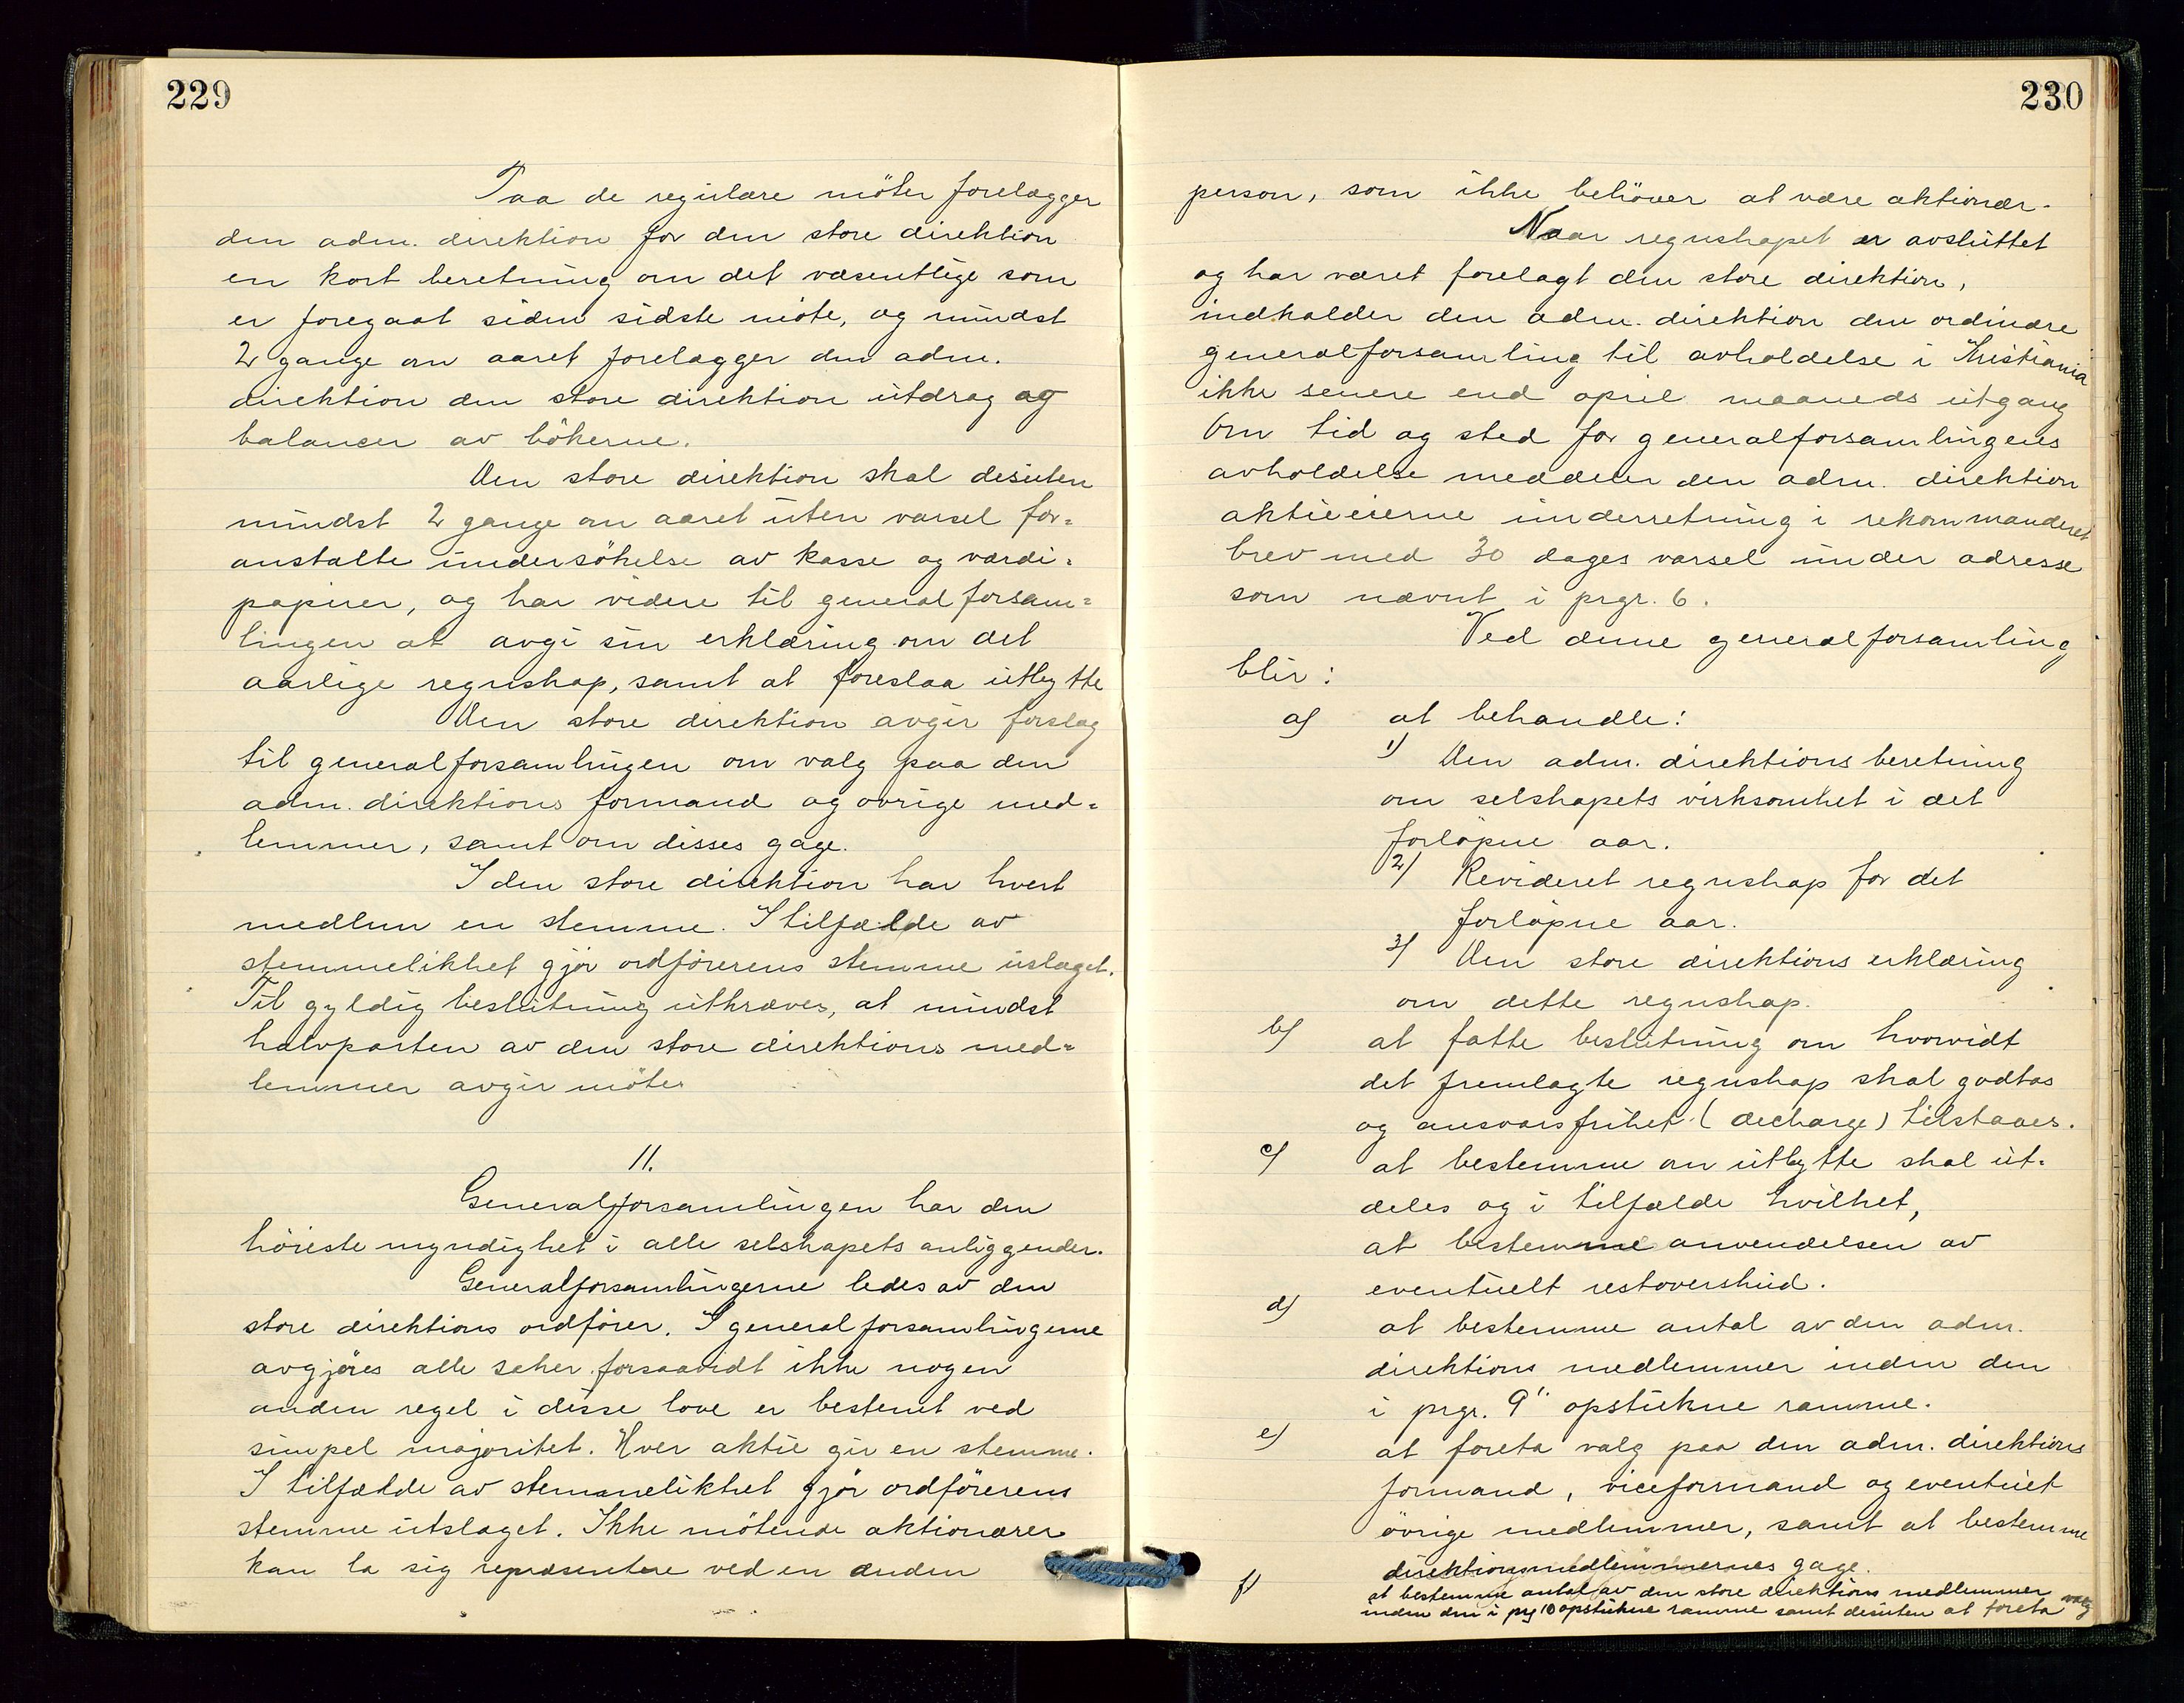 229
Paa de regulære möter forelægger
den adm. direktion for den store direktion
en kort beretning om det væsentlige som
er foregaat siden sidste möte, og mindst
2 gange om aaret forelægger den adm.
direktion den store direktion utdrag og
balancer av bökerne.
Den store direktion skal desuten
mindst 2 gange om aaret uten varsel for=
anstalte undersökelse av kasse og værdi=
papirer, og har videre til generalforsam=
lingen at avgi sin erklæring om det
aarlige regnskap, samt at foreslaa utbytte
Den store direktion avgir forslag
til generalforsamlingen om valg paa den
adm. direktions formand og övrige med=
lemmer, samt om disses gage.
I den store direktion har hvert
medlem en stemme. I tilfælde av
stemmelikhet gjör ordförerens stemme uslaget.
Til gyldig beslutning utkræves, at mindst
halvparten av den store direktions med=
lemmer avgir möter
11.
Generalforsamlingen har den
höieste myndighet i alle selskapets anliggender.
Generalforsamlingerne ledes av den
store direktions ordförer. I generalforsamlingerne
avgjöres alle saker forsaavidt ikke nogen
anden regel i disse love er bestemt ved
simpel majoritet. Hver aktie gir en stemme.
I tilfælde av stemmelikhet gjör ordförerens
stemme utslaget. Ikke mötende aktionærer
kan la sig repræsentere ved en anden
230
person, som ikke behöver at være aktionær.
Naar regnskapet er avsluttet
og har været forelagt den store direktion,
indkalder den adm. direktion den ordinære
generalforsamling til avholdelse i Kristiania
ikke senere end april maaneds utgang
Om tid og sted for generalforsamlingens
avholdelse meddeler den adm. direktion
aktieeierne underretning i rekommanderet
brev med 30 dages varsel under adresse
som nævnt i prgr. 6.
Ved denne generalforsamling
blir:
a) at behandle:
1) Den adm. direktions beretning
om selskapets virksomhet i det
forlöpne aar.
2) Revideret regnskap for det
forlöpne aar.
3) Den store direktions erklæring
om dette regnskap.
b) at fatte beslutning om hvorvidt
det fremlagte regnskap skal godtas
og ansvarsfrihet (decharge) tilstaaes.
c) at bestemme om utbytte skal ut=
deles og i tilfælde hvilket,
at bestemme anvendelsen av
eventuelt restoverskud.
d) at bestemme antal av den adm.
direktions medlemmer inden den
i prgr. 9" opstukne ramme.
e) at foreta valg paa den adm. direktions
formand, viceformand og eventuet
övrige medlemmer, samt at bestemme
direktionsmedlemmernes gage.
f) at bestemme antal av den store direktions medlemmer
inden den i prg 10 opstukne ramme samt desuten at foreta valg